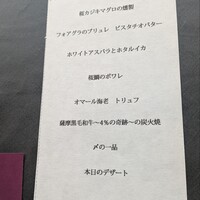 桜カジキマグロの燻製
フォアグラのブリュレ　ピスタチオバター
ホワイトアスパラとホタルイカ
桜鯛のポワレ
オマール海老　トリュフ
薩摩黒毛和牛〜4％の奇跡〜の炭火焼
〆の一品
本日のデザート